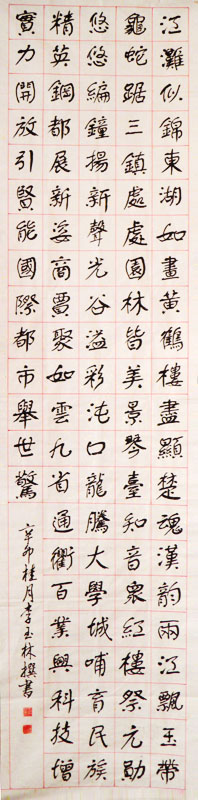 江灘似錦東湖如畫黃鶴樓盡顯楚魂漢韵兩江飄玉帶
龜蛇踞三鎮處處園林皆美景琴臺知音眾紅樓祭元勛
悠悠編鐘揚新聲光谷溢彩沌口龍騰大學城哺育民族
精英鋼都展新姿商賈聚如雲九省通衢百業興科技增
實力開放引賢能國際都市舉世驚
辛卯桂月李玉林撰書